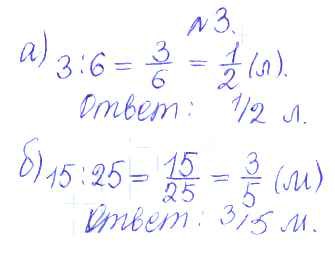 №3.
а) 3:6 = 3/6 = 1/2 (л).
Ответ: 1/2 л.
б) 15:25 = 15/25 = 3/5 (м)
Ответ: 3/5 м.